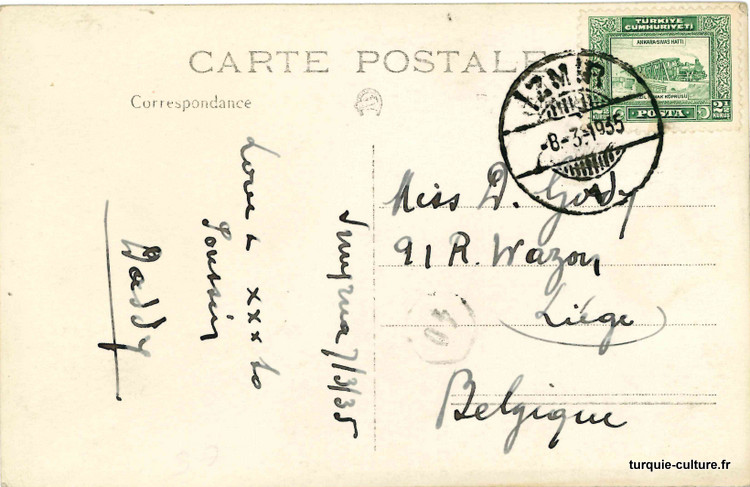 CARTE POSTALE
Correspondance
TÜRKİYE
CUMHURİYETİ
ANKARA-SIVAS HATTI
KÖPRÜSÜ
POSTA
2½
KURUŞ
İZMİR
-8-3-1935
Smyrna 7/3/35
Love &
xxx to
Poussin
Daddy
Miss D. Gody
91 R. Wazon
Liége
Belgique
turquie-culture.fr